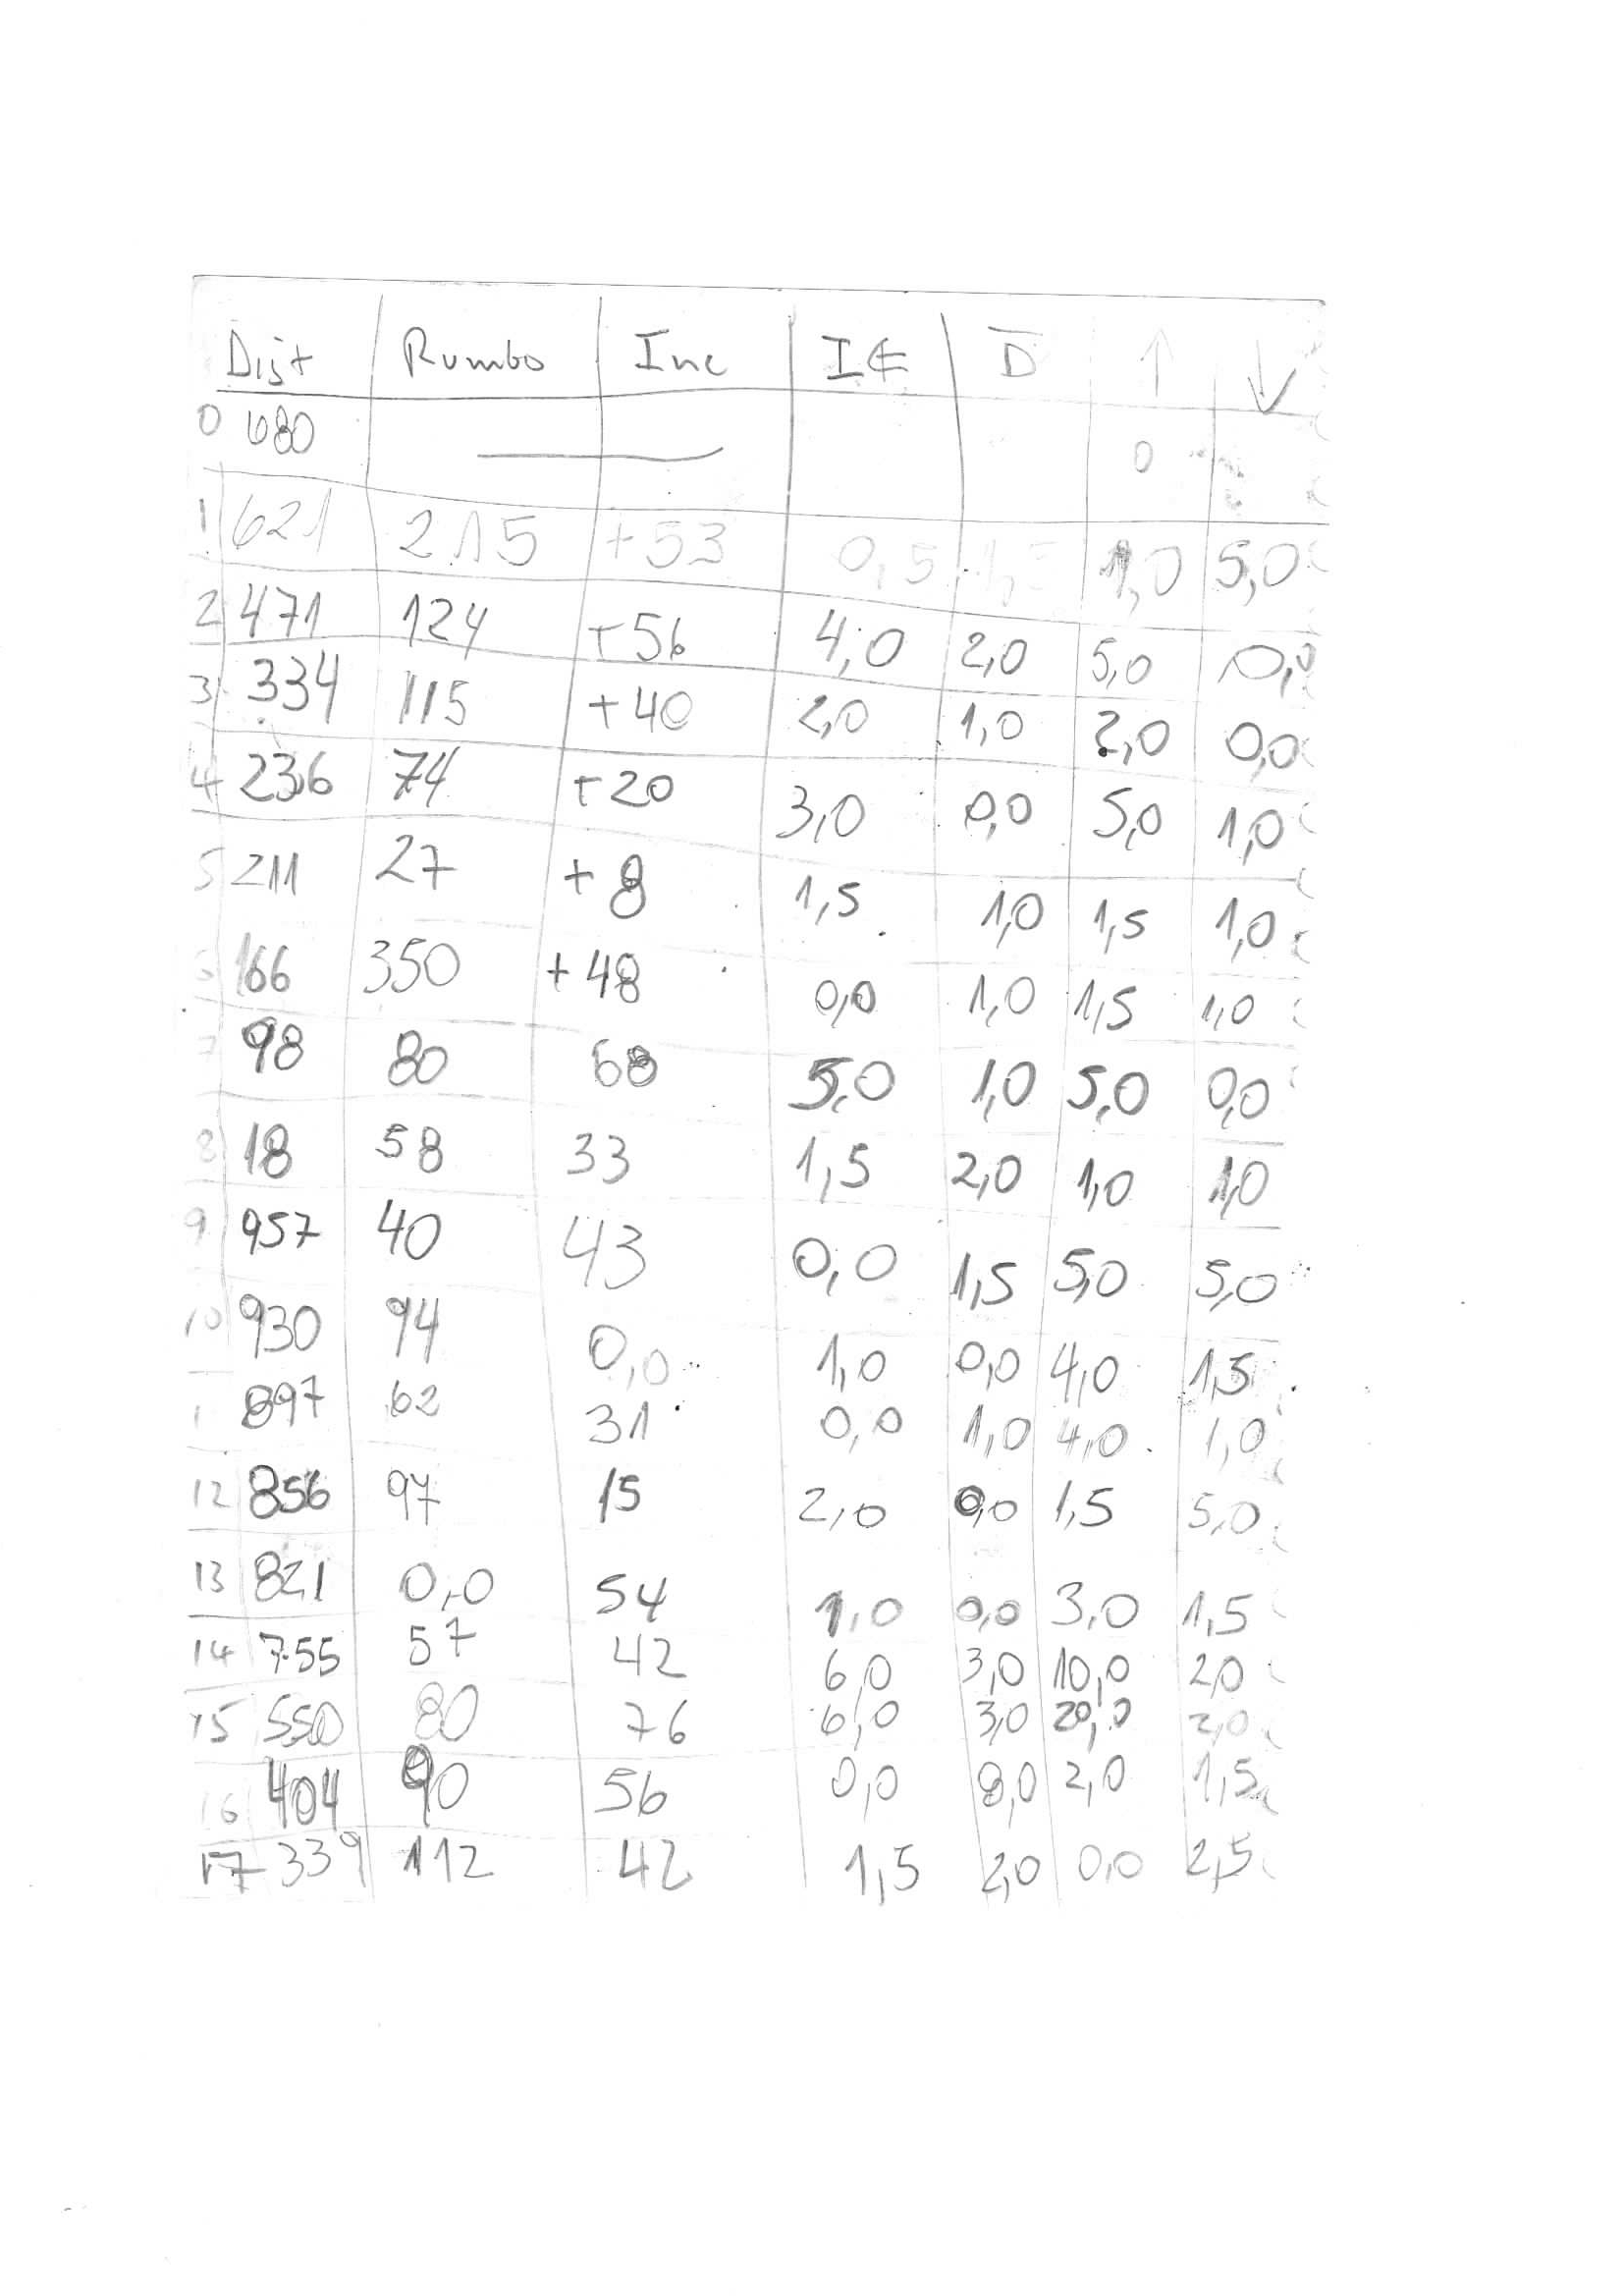 Dist Rumbo Inc I D ↑ ↓
0 680 — 0
1 621 215 +53 0,5 1,0 5,0
2 471 124 +56 4,0 2,0 5,0 0,0
3 334 115 +40 2,0 1,0 2,0 0,0
4 236 74 +20 3,0 0,0 5,0 1,0
5 211 27 +8 1,5 1,0 1,5 1,0
6 166 350 +48 0,0 1,0 1,5 1,0
7 98 80 68 5,0 1,0 5,0 0,0
8 18 58 33 1,5 2,0 1,0 1,0
9 957 40 43 0,0 1,5 5,0 5,0
10 930 94 0,0 1,0 0,0 4,0 1,5
897 62 31 0,0 1,0 4,0 1,0
12 856 97 15 2,0 0,0 1,5 5,0
13 821 0,0 54 1,0 0,0 3,0 1,5
14 755 57 42 6,0 3,0 10,0 2,0
15 550 80 76 6,0 3,0 20,0 2,0
16 404 90 56 0,0 8,0 2,0 1,5
17 339 112 42 1,5 2,0 0,0 2,5